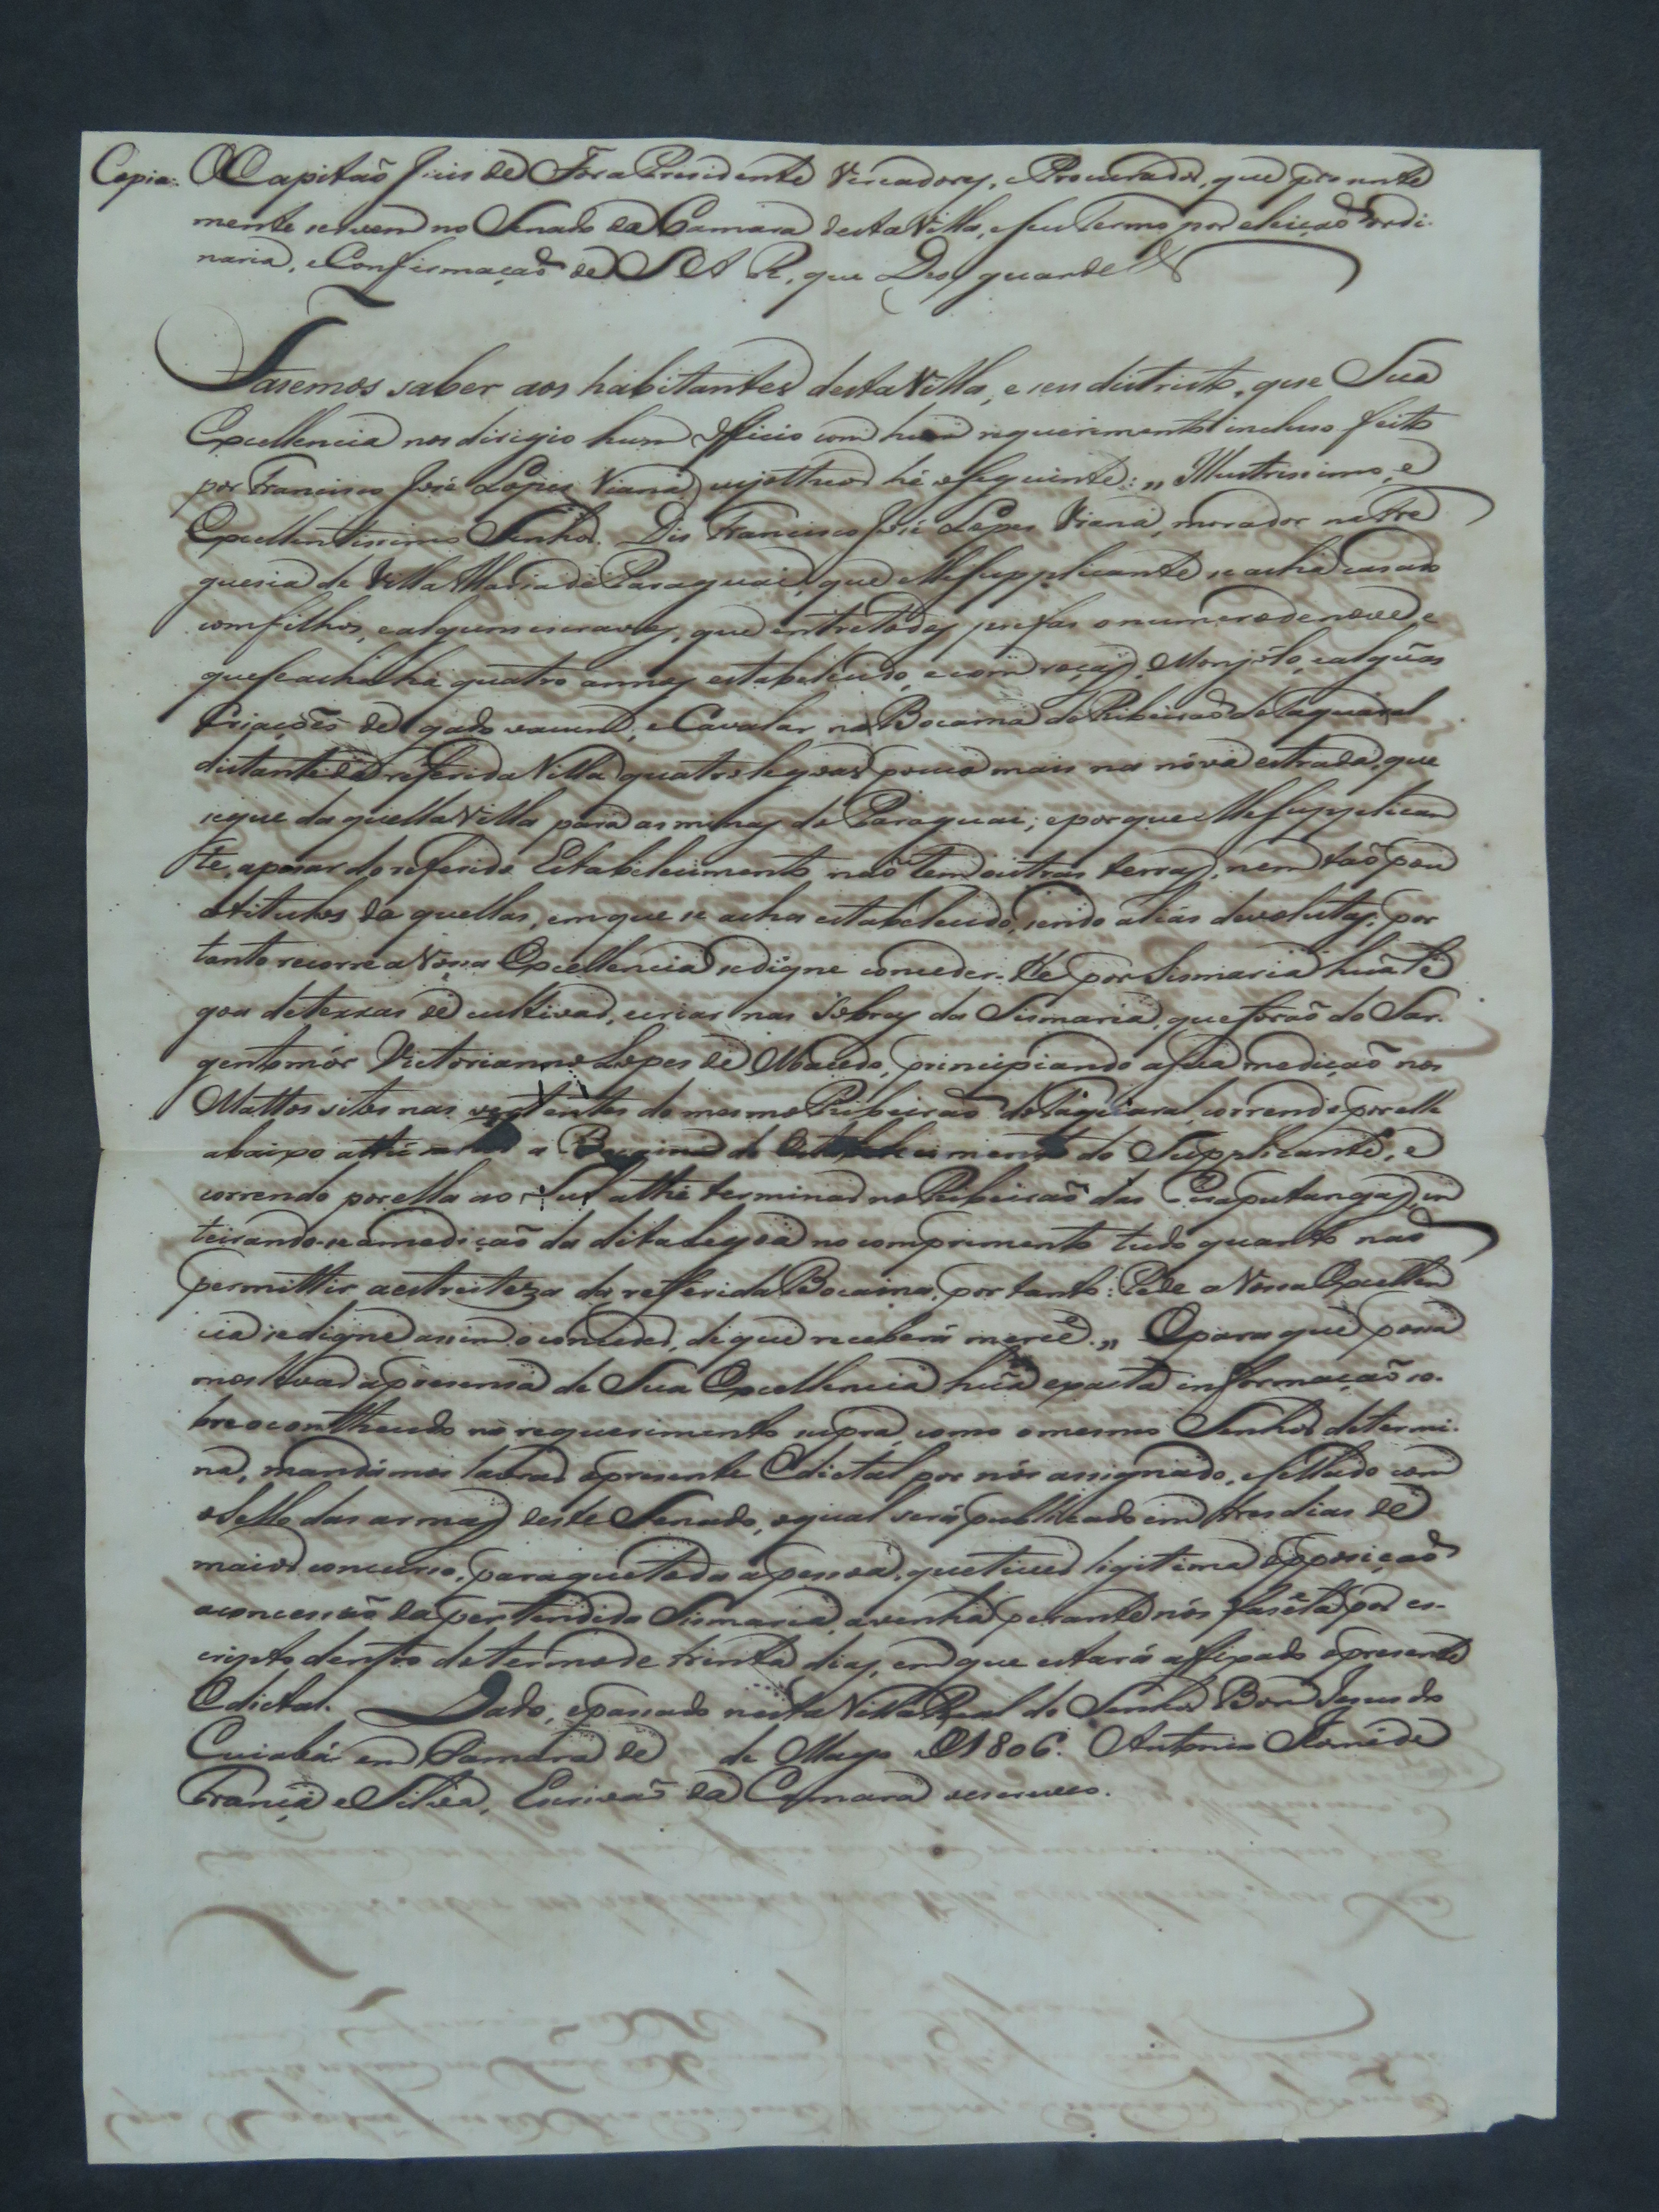 Copia. O Capitaõ Juis de Fora Presidente Vereadores, e Procurador, que prezente
mente servem no Senado da Camara desta Villa, e seu Termo por eleiçaõ ordi-
naria, e Confirmaçaõ de S A R, que Deos guarde &
Fasemos saber aos habitantes desta Villa, e seu districto, que Sua
Excellencia nos dirigio hum officio com hum requerimento incluso feito
por Francisco José Lopes Viana, cujo theor hé o seguinte: „ Illustrissimo, e
Excellentissimo Senhor. Dis Francisco José Lopes Viana, morador na Fre
guesia de Villa Maria do Paraguai, que elle supplicante se acha casado
com filhos, e alguns escravos, que entre todos perfas o numero de nove, e
que se acha há quatro annos estabelecido, e com roças, Monjôlo, e algũas
Criaçoẽs de gado vacum, e Cavalar na Bocaina do Ribeiraõ do Taquaral
distante da referida Villa quatro legoas pouco mais na nóva estrada, que
segue daquella Villa para as minas do Paraguai; e porque elle supplican
te, apesar do referido Estabelecimento naõ tem outras terras, nem taõ pou
co titulos da quellas, em que se acha estabelecido, sendo aliás devolutas; por
tanto recorre a Vossa Excellencia se digne conceder-lhe por Sismaria huã le
goa de terras de cultivar, e criar nas sobras da Sismaria, que foraõ do Sar-
gento mór Victorianno Lopes de Macedo, principiando a sua mediçaõ nos
Mattos sitos nas vertentes do mesmo Ribeiraõ do Taquaral, correndo por elle
abaixo athé a Bocaina do Estabelecimento do Supplicante, e
correndo por ella ao Sul athé terminar no Ribeiraõ das Piraputangas, in
teirando-se a mediçaõ da dita legoa no comprimento tudo quanto naõ
permittir a estreiteza da refferida Bocaina, por tanto: Pede a Vossa Excellen
cia se digne assim o conceder, de que receberá mercê. „ E para que possa
mos levar a presensa de Sua Excellencia huã exacta informaçaõ so-
bre o contheudo no requerimento supra, como o mesmo Senhor determi-
na, mandámos lavrar o presente Edictal por nós assignado, e sellado com
o sello das armas deste Senado, o qual será publicado em tres dias de
maior concurso, para que toda a pessoa, que tiver legitima opposiçaõ
a concessaõ da pertendida Sismaria, a venha perante nós fasê-la por es-
cripto dentro do termo de trinta dias, em que estará affixado o presente
Edictal. Dado, e passado nesta Villa Real do Senhor Bom Jesus do
Cuiabá em Camara de de Mayo de 1806. Antonio Jose de
França e Silva, Escrivaõ da Camara o escrevo.